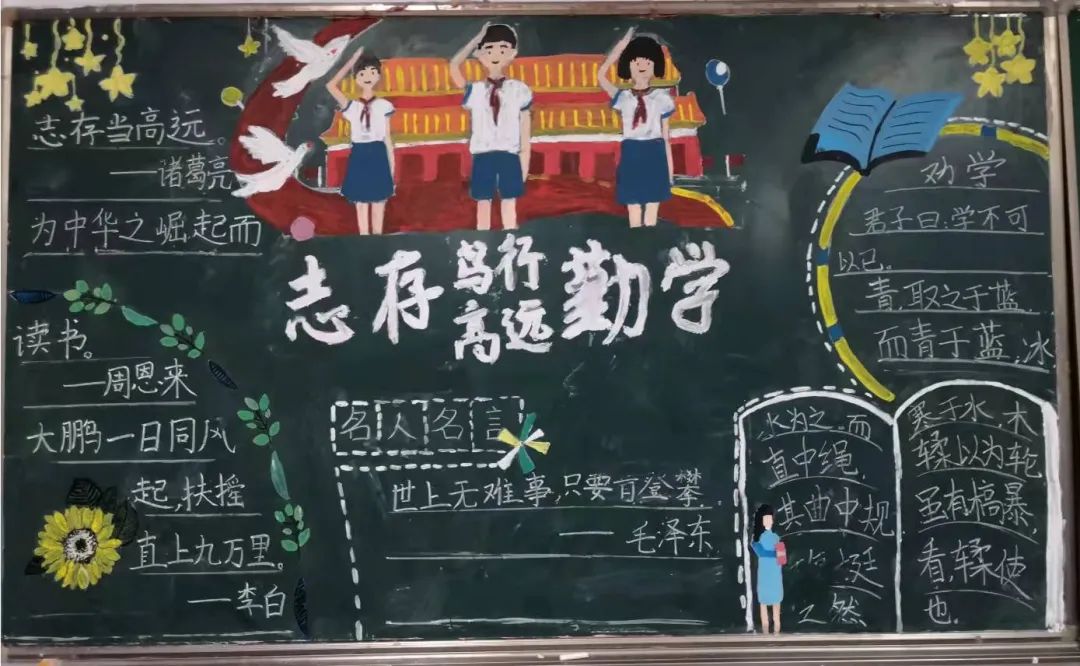 志存当高远。
——诸葛亮
为中华之崛起而
读书。
——周恩来
大鹏一日同风
起,扶摇
直上九万里。
——李白
志存高远
笃行勤学
名人名言
世上无难事,只要肯登攀.
——毛泽东
劝学
君子曰:学不可
以已。
青,取之于蓝,
而青于蓝,冰
水为之,而
直中绳,
其曲中规
挺
之然
寒于水,木
輮以为轮
虽有槁暴,
者,輮使
也.